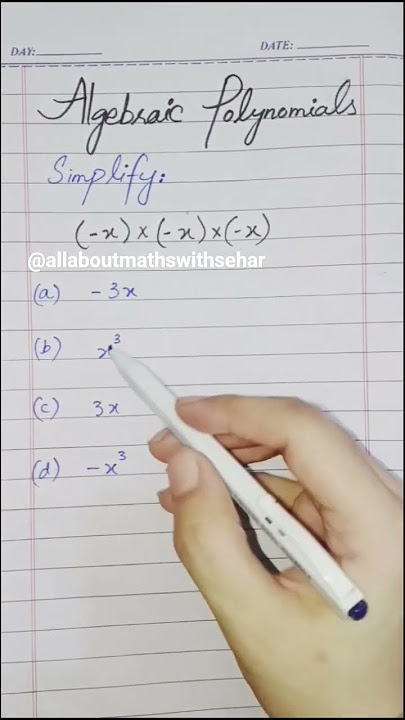 DAY:
DATE:
Algebraic Polynomials
Simplify:
(-x) × (-x) × (-x)
@allaboutmathswithsehar
(a) -3x
(b) x³
(c) 3x
(d) -x³